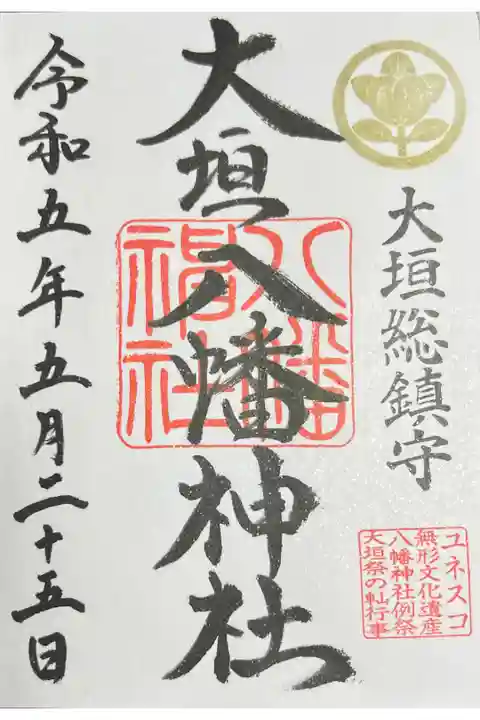 大垣総鎮守
大垣八幡神社
八幡
神社
令和五年五月二十五日
ユネスコ
無形文化遺産
八幡神社例祭
大垣祭の軕行事